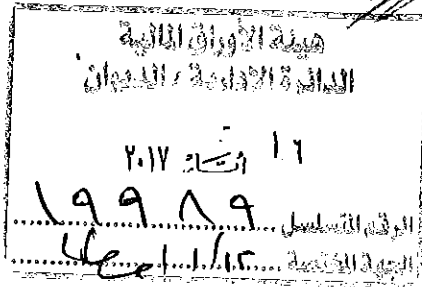 هيئة الأوراق المالية
الدائرة الإدارية / الديوان
١٦ ٢٠١٧
الرقم التسلسل ١٩٩٨٩
الجهة المختصة ١١/١٢